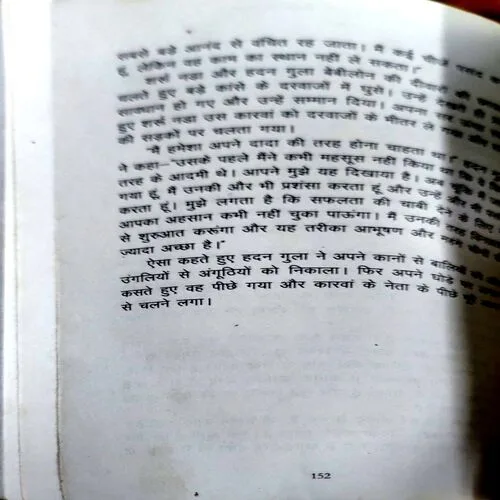 सबसे बड़े आनंद से वंचित रह जाता। मैं कई चीजें पसंद
हूं, लेकिन वह काम का स्थान नहीं ले सकता।"
शर्रू नडा और हदन गुला बेबीलोन की दीवारों की
चलते हुए बड़े कांसे के दरवाजों में घुसे। उन्हें देखते ही
सावधान हो गए और उन्हें सम्मान दिया। अपना सर
हुए शर्रू नडा उस कारवां को दरवाजों के भीतर ले गया और
की सड़कों पर चलता गया।
"मैं हमेशा अपने दादा की तरह होना चाहता था।" हदन
ने कहा–"उसके पहले मैंने कभी महसूस नहीं किया था कि वे किस
तरह के आदमी थे। आपने मुझे यह दिखाया है। अब चूंकि मैं
गया हूं, मैं उनकी और भी प्रशंसा करता हूं और उन्हें और भी
करता हूं। मुझे लगता है कि सफलता की चाबी देने के लिए
आपका अहसान कभी नहीं चुका पाऊंगा। मैं उनकी तरह
से शुरुआत करूंगा और यह तरीका आभूषण और महंगे चीजों
ज्यादा अच्छा है।"
ऐसा कहते हुए हदन गुला ने अपने कानों से बालियों और
उंगलियों से अंगूठियों को निकाला। फिर अपने घोड़े पर
कसते हुए वह पीछे गया और कारवां के नेता के पीछे
से चलने लगा।
152